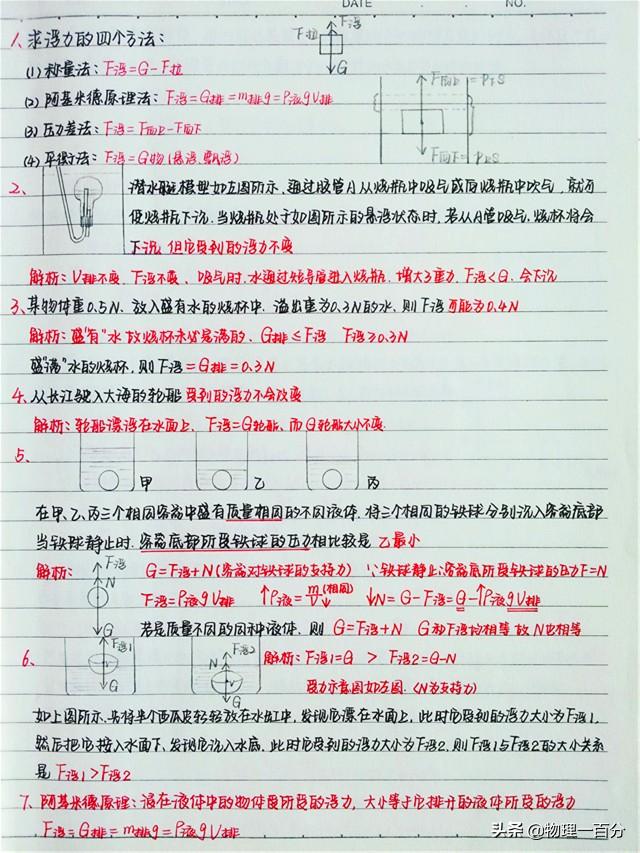 DATE NO.
1、求浮力的四个方法：
(1) 称量法：F浮=G-F拉
(2) 阿基米德原理法：F浮=G排=m排g=ρ液gV排
(3) 压力差法：F浮=F向上-F向下
(4) 平衡法：F浮=G物(悬浮、飘浮)
F浮
F拉
G
F向上=P下S
F向下=P上S
2、潜水艇模型如左图所示、通过胶管A从烧瓶中吸气或向烧瓶中吹气，就可
使烧瓶下沉.当烧瓶处于如图所示的悬浮状态时.若从A管吸气.烧杯将会
下沉 但它受到的浮力不变
解析：V排不变、F浮不变、吸气时.水通过玻导管进入烧瓶.增大了重力.F浮<G.会下沉
3、某物体重0.5N、放入盛有水的烧杯中.溢出重为0.3N的水、则F浮可能为0.4N
解析：盛"有"水 故烧杯未必是满的、G排≤F浮 F浮≥0.3N
盛"满"水的烧杯，则F浮=G排=0.3N
4、从长江驶入大海的轮船受到的浮力不会改变
解析：轮船漂浮在水面上、F浮=G轮船、而G轮船大小不变.
5、
甲 乙 丙
在甲、乙、丙三个相同容器中盛有质量相同的不同液体.将三个相同的铁球分别沉入容器底部
当铁球静止时.容器底部所受铁球的压力相比较是 乙最小
解析： G=F浮+N(容器对铁球的支持力) ∵铁球静止∴容器底所受铁球的压力F=N
F浮=ρ液gV排 ↑ρ液=m/V↓(相同) ↓N=G-F浮=G-↑ρ液gV排
若是质量不同的同种液体、则 G=F浮+N G和F浮均相等 故N也相等
F浮
N
G
6、
F浮1
G
F浮2
N
G
解析：F浮1=G > F浮2=G-N
受力示意图如左图.(N为支持力)
如上图所示.先将半个西瓜皮轻轻放在水缸中，发现它漂在水面上，此时它受到的浮力大小为F浮1.
然后把它按入水面下、发现它沉入水底.此时它受到的浮力大小为F浮2.则F浮1与F浮2的大小关系
是F浮1>F浮2
7、阿基米德原理：浸在液体中的物体受所受的浮力，大小等于它排开的液体所受的浮力
F浮=G排=m排g=ρ液gV排
头条 @物理一百分